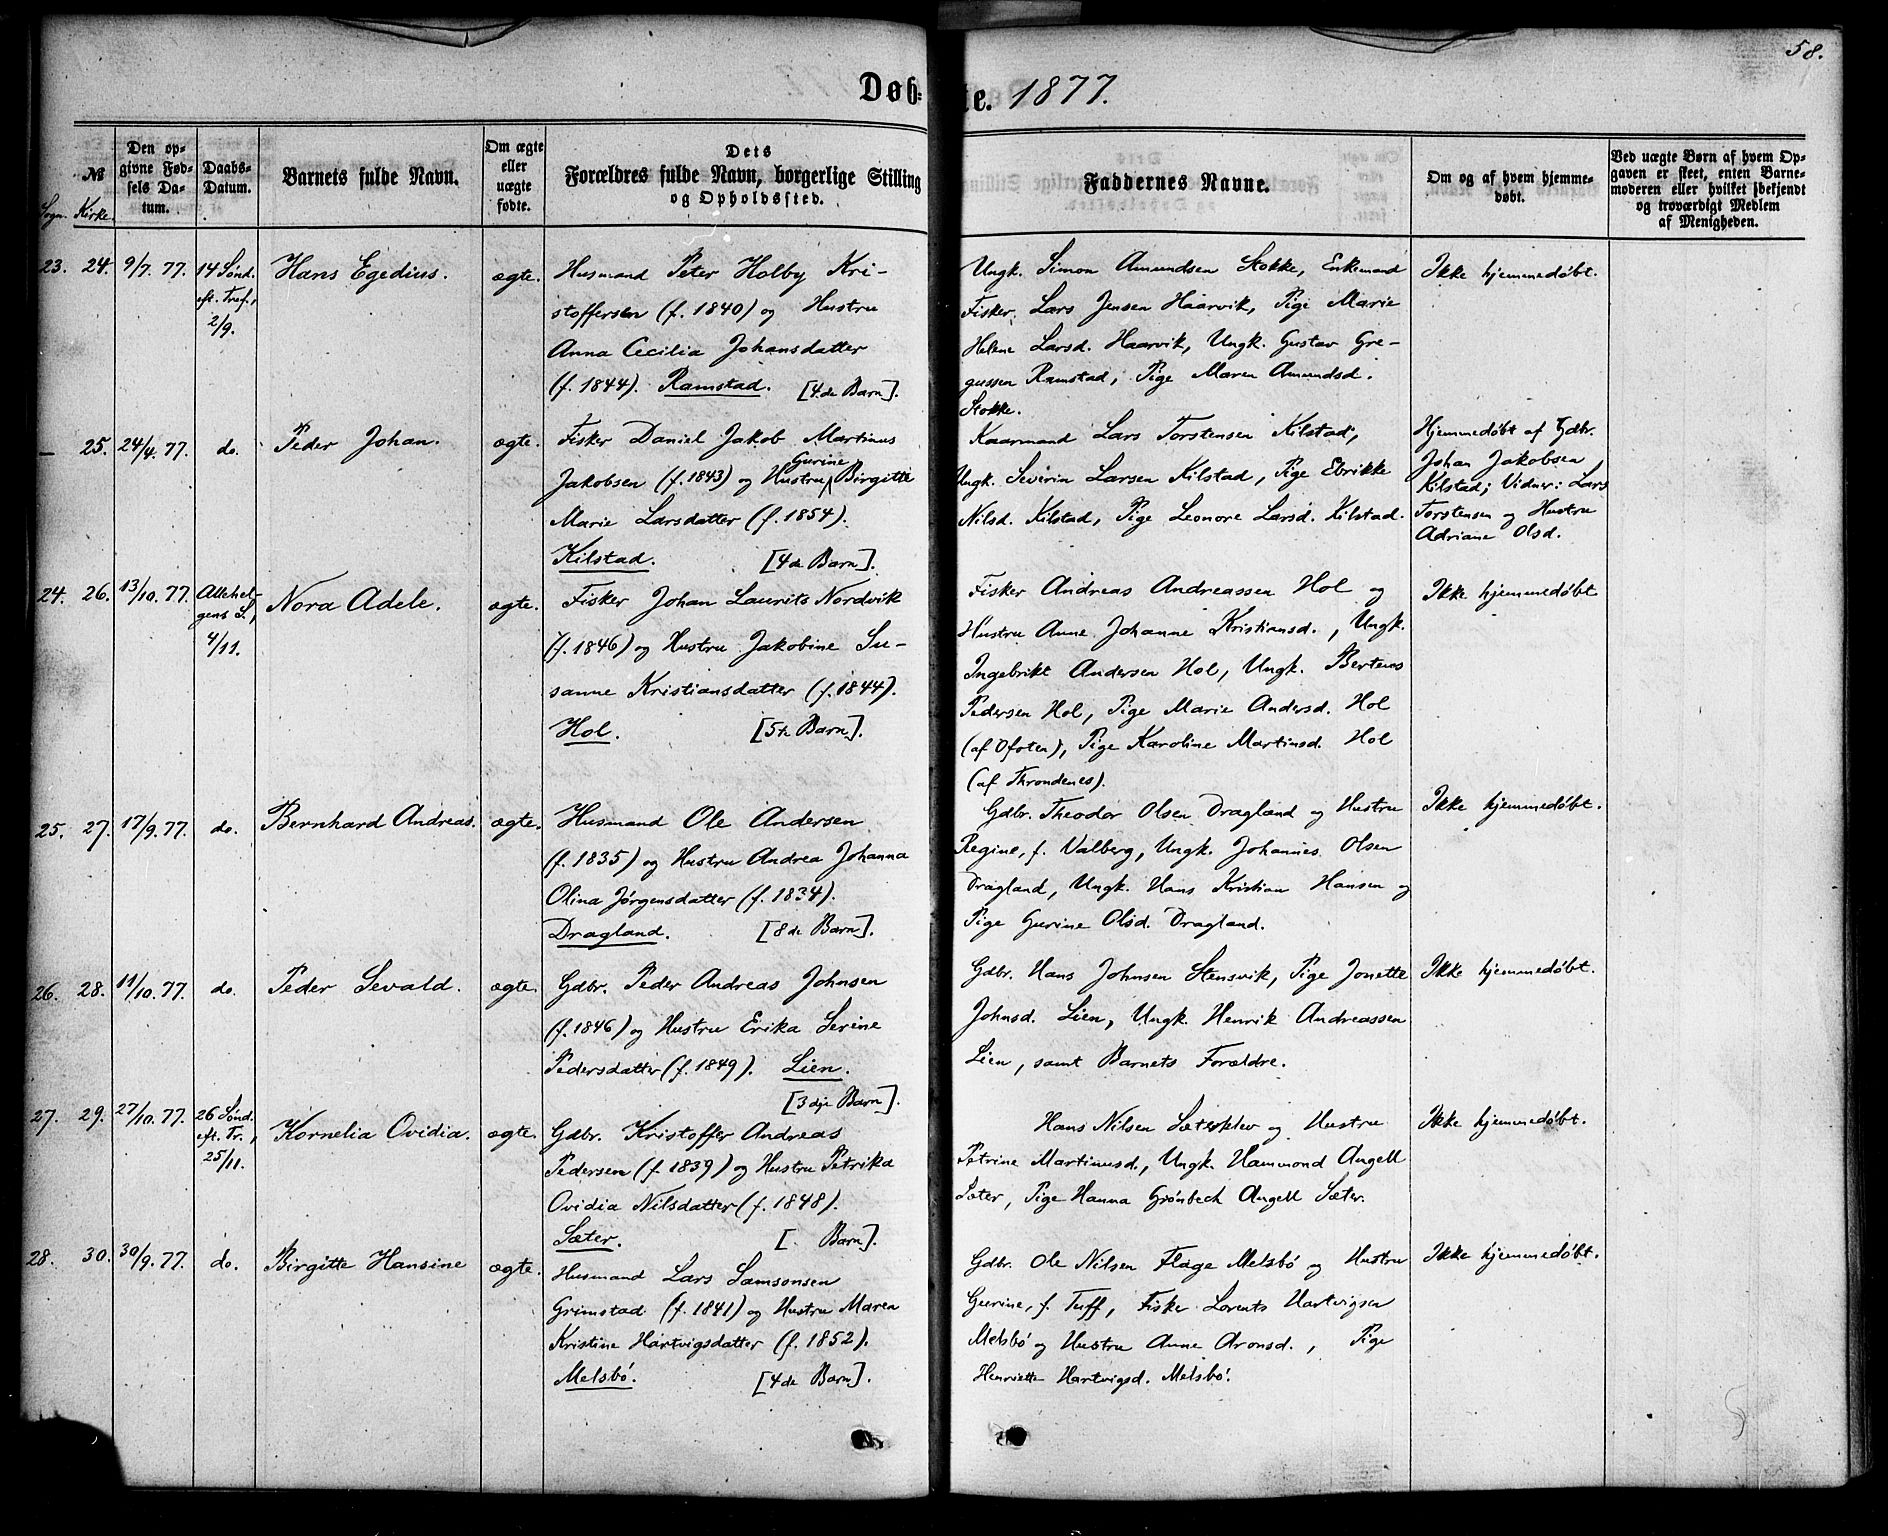 58.
Døb-
te. 1877.
Sogn. № Kirke.
Den op-
givne Fød-
sels Da-
tum.
Daabs-
Datum.
Barnets fulde Navn.
Om ægte
eller
uægte
fødte.
Dets
Forældres fulde Navn, borgerlige Stilling
og Opholdssted.
Faddernes Navne.
Om og af hvem hjemme-
døbt.
Ved uægte Børn af hvem Op-
gaven er skeet, enten Barne-
moderen eller hvilket ibekjendt
og troværdigt Medlem
af Menigheden.
23. 24. 9/7. 77. 14 Sønd.
eft. Tref.,
2/9.
Hans Egedius.
ægte.
Husmand Peter Holby Kri-
stoffersen (f. 1840) og Hustru
Anna Cecilia Johansdatter
(f. 1844). Ramstad. [4de Barn].
Ungk. Simon Amundsen Stokke, Enkemand
Fisker Lars Jensen Haarvik, Pige Marie
Helene Larsd. Haarvik, Ungk. Gustav Gre-
gussen Ramstad, Pige Maren Amundsd.
Stokke.
Ikke hjemmedøbt.
— 25. 24/4. 77. do.
Peder Johan.
ægte.
Fisker Daniel Jakob Martinus
Jakobsen (f. 1843) og Hustru Gurine Birgitte
Marie Larsdatter (f. 1854).
Kilstad. [4de Barn].
Kaarmand Lars Torstensen Kilstad,
Ungk. Severin Larsen Kilstad, Pige Ebrikke
Nilsd. Kilstad, Pige Leonore Larsd. Kilstad.
Hjemmedøbt af Gdbr.
Johan Jakobsen,
Kilstad; Vidner: Lars
Torstensen og Hustru
Adriane Olsd.
24. 26. 13/10. 77. Allehel-
gens S.,
4/11.
Nora Adele.
ægte.
Fisker Johan Laurits Nordvik
(f. 1846) og Hustru Jakobine Su-
sanne Kristiansdatter (f. 1844).
Hol. [5te Barn].
Fisker Andreas Andreassen Hol og
Hustru Anne Johanne Kristiansd., Ungk.
Ingebrikt Andersen Hol, Ungk. Berteus
Pedersen Hol, Pige Marie Andersd. Hol
(af Ofoten), Pige Karoline Martinsd. Hol
(af Throndenes).
Ikke hjemmedøbt
25. 27. 17/9. 77. do.
Bernhard Andreas.
ægte.
Husmand Ole Andersen
(f. 1835) og Hustru Andrea Johanna
Olina Jørgensdatter (f. 1834).
Dragland. [8de Barn].
Gdbr. Theodor Olsen Dragland og Hustru
Regine, f. Valberg, Ungk. Johannes Olsen
Dragland, Ungk. Hans Kristian Hansen og
Pige Gurine Olsd. Dragland.
Ikke hjemmedøbt.
26. 28. 11/10. 77. do.
Peder Sevald.
ægte.
Gdbr. Peder Andreas Johnsen
(f. 1846) og Hustru Erika Serine
Pedersdatter (f. 1849). Lien.
[3dje Barn].
Gdbr. Hans Johnsen Stensvik, Pige Jonette
Johnsd. Lien, Ungk. Henrik Andreassen
Lien, samt Barnets Forældre.
Ikke hjemmedøbt.
27. 29. 27/10. 77. 26 Sønd.
eft. Tr.,
25/11.
Kornelia Ovidia.
ægte.
Gdbr. Kristoffer Andreas
Pedersen (f. 1839) og Hustru Petrika
Ovidia Nilsdatter (f. 1848).
Sæter. [ Barn].
Hans Nilsen Sæterklev og Hustru
Petrine Martinusd., Ungk. Hammond Angell
Sæter, Pige Hanna Grønbech Angell Sæter.
Ikke hjemmedøbt.
28. 30. 30/9. 77. do.
Birgitte Hansine
ægte.
Husmand Lars Samsonsen
Grimstad (f. 1841) og Hustru Maren
Kristine Hartvigsdatter (f. 1852).
Melsbø. [4de Barn].
Gdbr. Ole Nilsen Flage Melsbø og Hustru
Gurine, f. Tuff, Fisker Lorents Hartvigsen
Melsbø og Hustru Anne Aronsd., Pige
Henriette Hartvigsd. Melsbø.
Ikke hjemmedøbt.